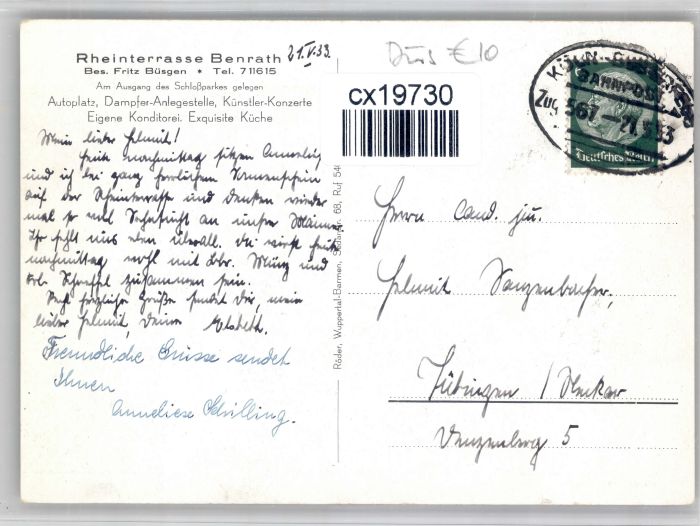 Rheinterrasse Benrath
Bes. Fritz Büsgen * Tel. 711615
Am Ausgang des Schloßparkes gelegen
Autoplatz, Dampfer-Anlegestelle, Künstler-Konzerte
Eigene Konditorei. Exquisite Küche
21.V.33.
Düs €10
cx19730
KÖLN
BAHNPOST
Zug 567 - 21.5.33
Deutsches Reich
Mein lieber Helmut!
Heute nachmittag sitzen Anneliese
und ich bei ganz herrlichem Sonnenschein
auf der Rheinterrasse und denken wieder
mal so viel Sehnsucht an unsere Männer.
Ihr fehlt uns eben überall. Du wirst heute
nachmittag wohl mit Bbr. Münz und
zusammen sein.
Recht herzliche Grüße sendet Dir, mein
lieber Helmut, Deine Elsbeth.
Freundliche Grüsse sendet
Ihnen
Anneliese Schilling.
Röder, Wuppertal-Barmen, Sedanstr. 68, Ruf 540
Herrn cand. jur.
Helmut Sanzenbacher,
Tübingen / Neckar
5